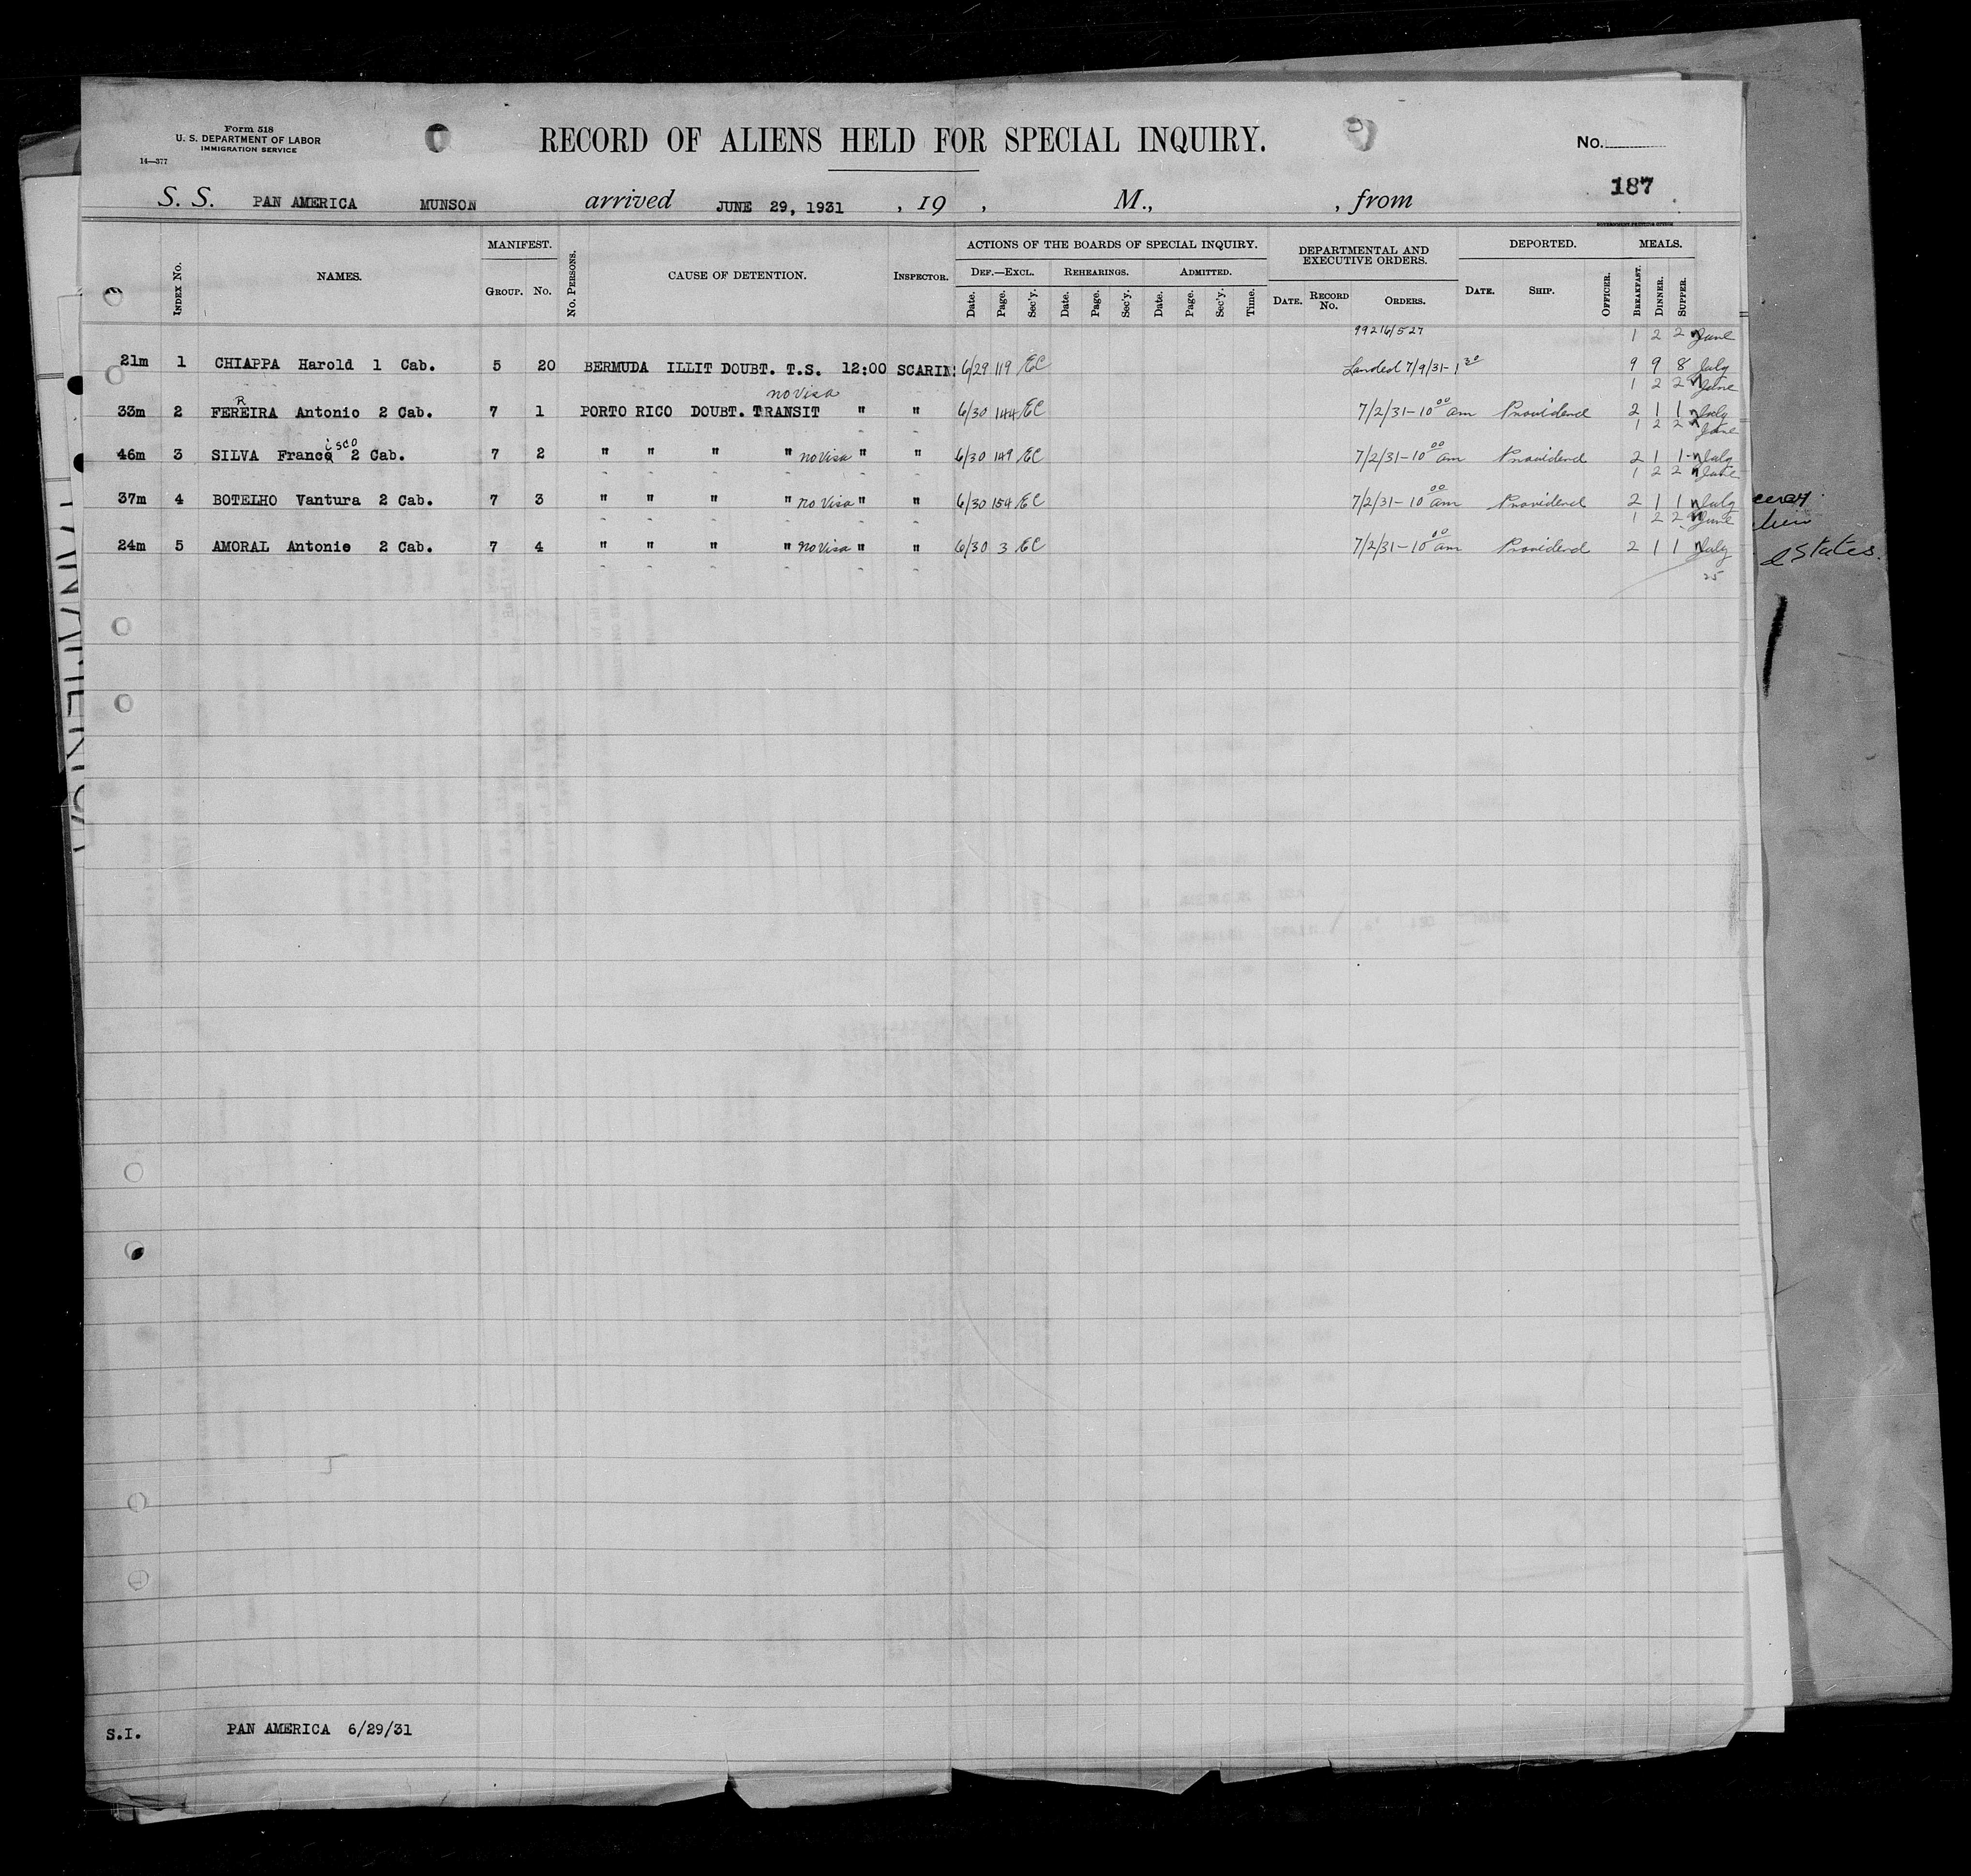 Form 518
U. S. DEPARTMENT OF LABOR
IMMIGRATION SERVICE
14—377
RECORD OF ALIENS HELD FOR SPECIAL INQUIRY.
No.
187
S. S. PAN AMERICA MUNSON arrived JUNE 29, 1931 , 19 , M., , from
GOVERNMENT PRINTING OFFICE
INDEX No. NAMES. MANIFEST. GROUP. No. No. PERSONS. CAUSE OF DETENTION. INSPECTOR. ACTIONS OF THE BOARDS OF SPECIAL INQUIRY. DEPARTMENTAL AND EXECUTIVE ORDERS. DEPORTED. MEALS.
DEF.—EXCL. REHEARINGS. ADMITTED.
Date. Page. Sec'y. Date. Page. Sec'y. Date. Page. Sec'y. Time. DATE. RECORD No. ORDERS. DATE. SHIP. OFFICER. BREAKFAST. DINNER. SUPPER.
99216/527 1 2 2 June
21m 1 CHIAPPA Harold 1 Cab. 5 20 BERMUDA ILLIT DOUBT. T.S. 12:00 SCARIN 6/29 119 EC Landed 7/9/31-1 30 9 9 8 July
no Visa 1 2 2 June
R
33m 2 FEREIRA Antonio 2 Cab. 7 1 PORTO RICO DOUBT. TRANSIT " " 6/30 144 EC 7/2/31-10 00 am Providend 2 1 1 July
isco 1 2 2 June
46m 3 SILVA Franco 2 Cab. 7 2 " " " " no Visa " " 6/30 149 EC 7/2/31-10 00 am Providend 2 1 1 July
1 2 2 June
37m 4 BOTELHO Vantura 2 Cab. 7 3 " " " " no Visa " " 6/30 154 EC 7/2/31-10 00 am Providend 2 1 1 July
1 2 2 June
24m 5 AMORAL Antonie 2 Cab. 7 4 " " " " no Visa " " 6/30 3 EC 7/2/31-10 00 am Providend 2 1 1 July
25
States.
S.I. PAN AMERICA 6/29/31